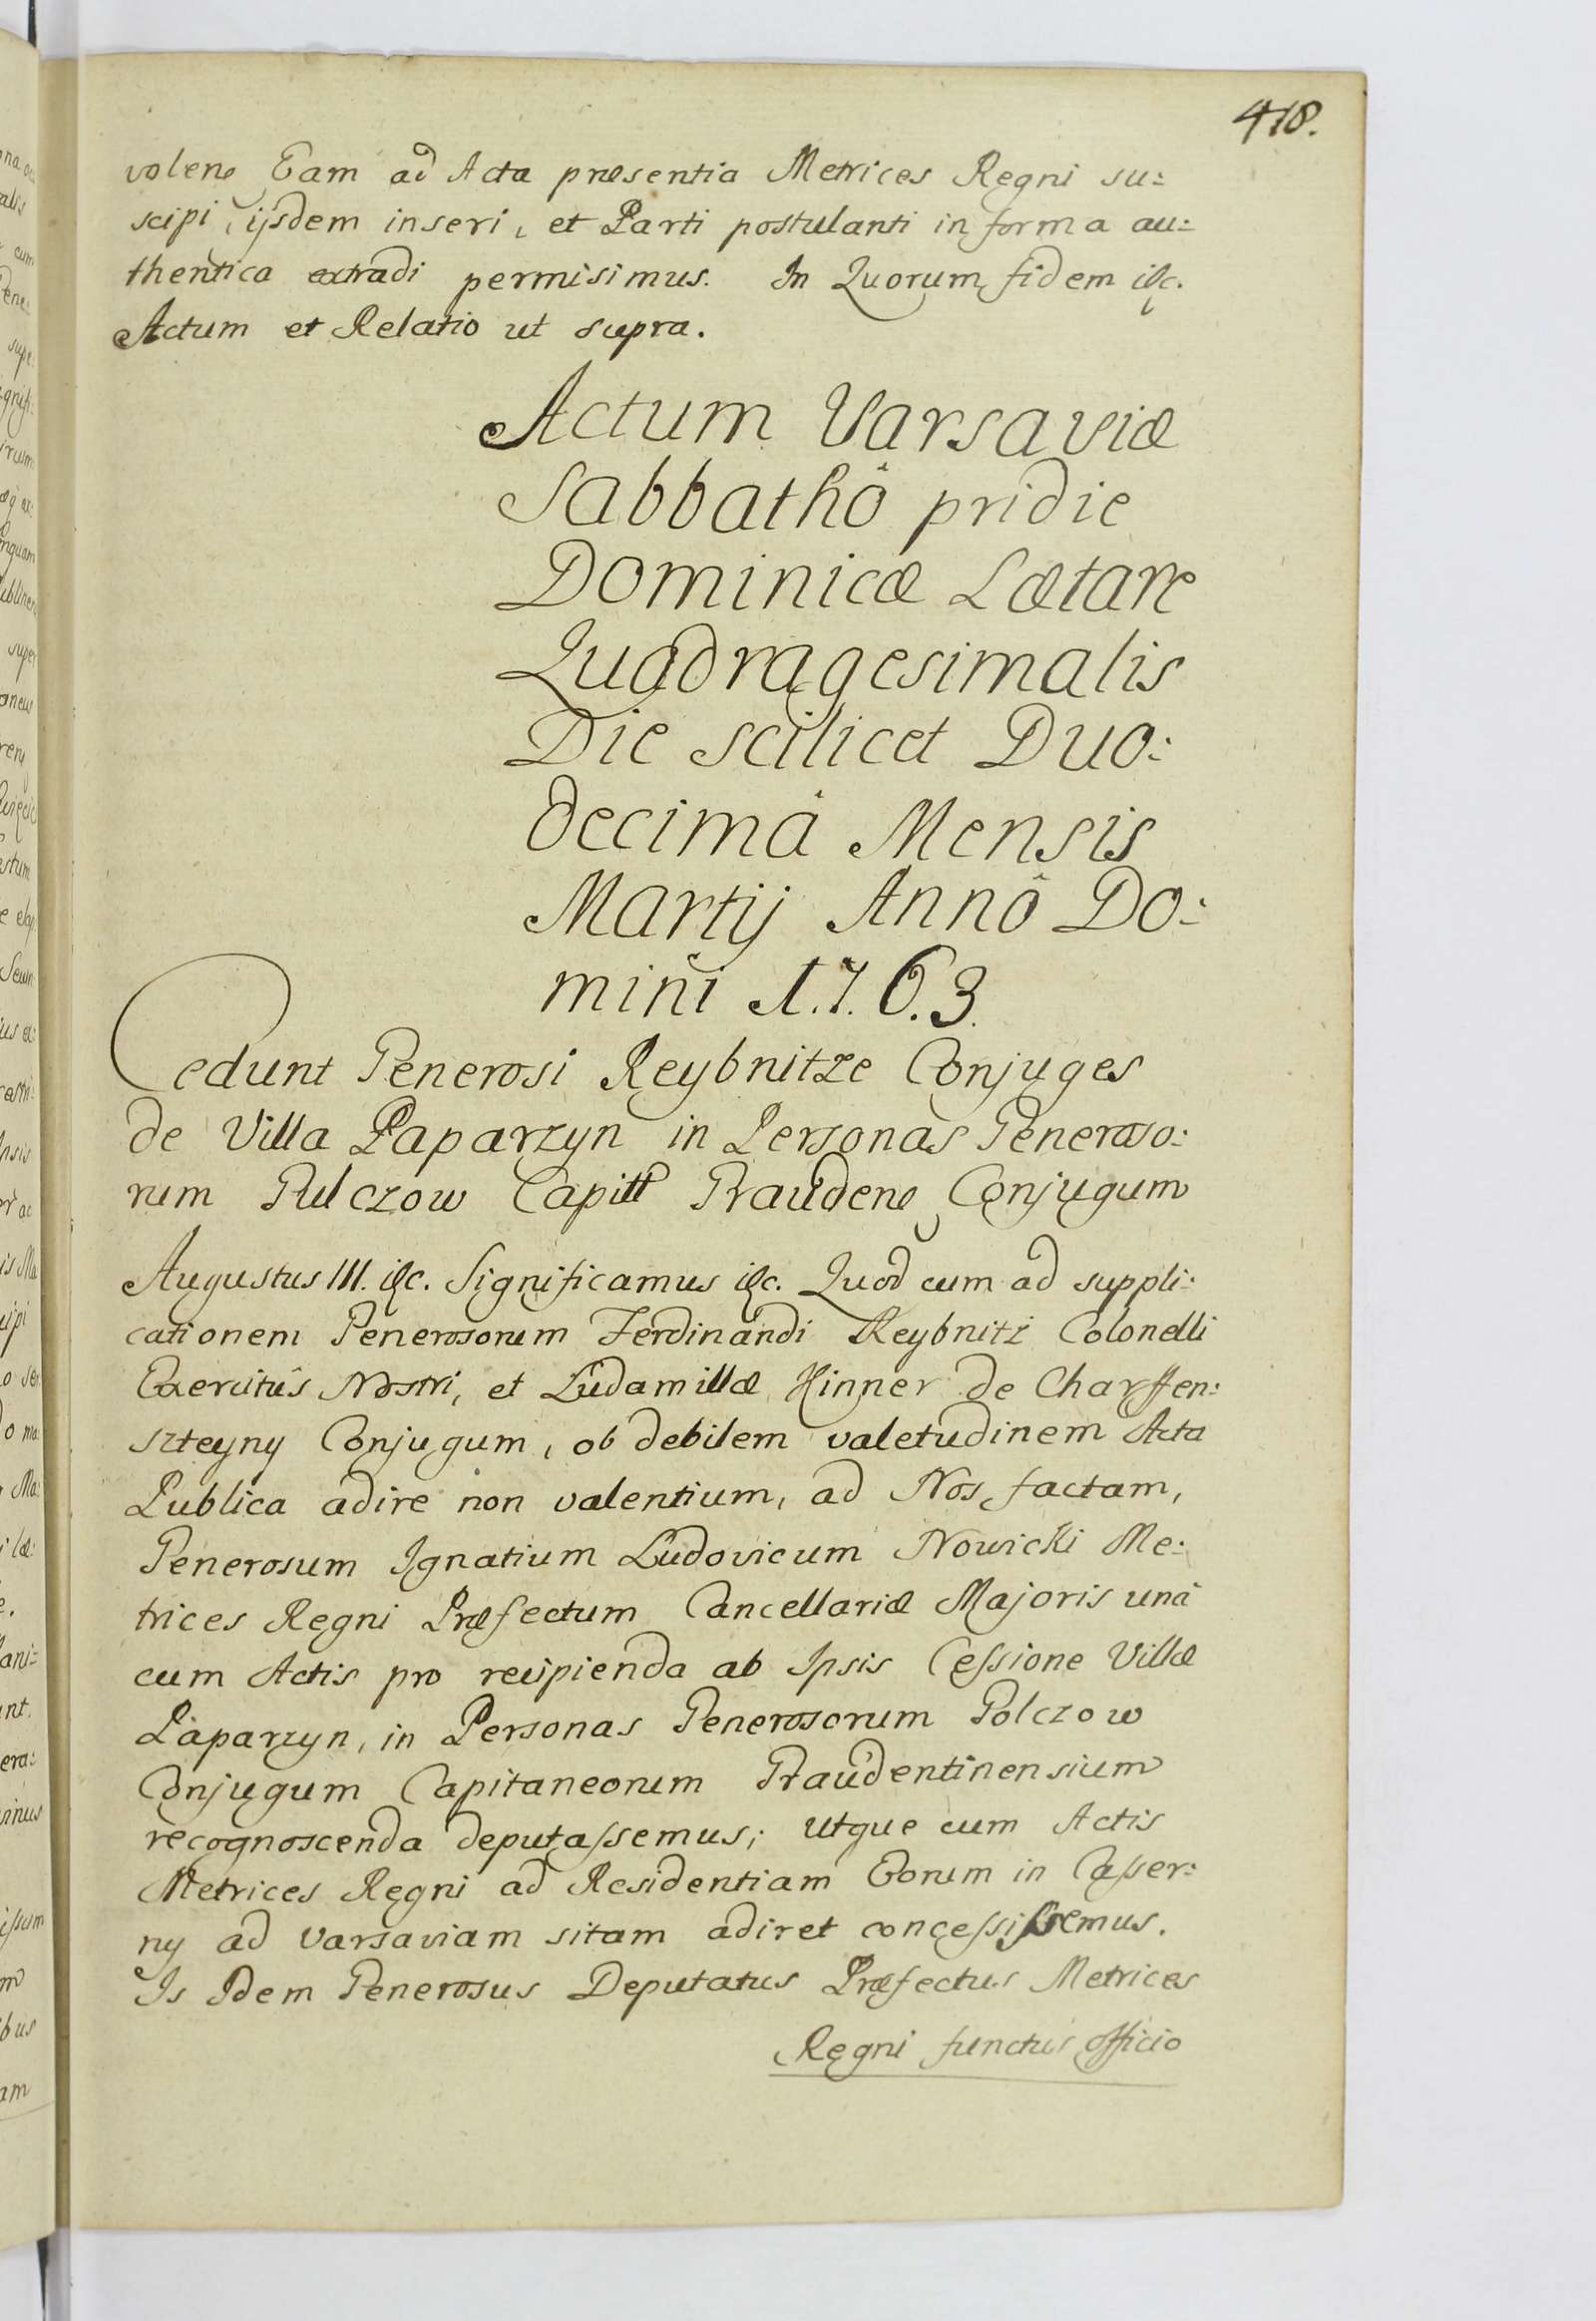 418.
volen Eam ad Acta præsentia Metrices Regni su=
scipi, ijsdem inseri, et Parti postulanti in forma au=
thentica extradi permisimus. In Quorum fidem &c.
Actum et Relatio ut supra.
Actum Varsaviæ
Sabbathô pridie
Dominicæ Lætare
Quadragesimalis
Die scilicet Duo:
decimâ Mensis
Martij Annô Do:
mini 1.7.6.3.
Cedunt Generosi Reybnitze Conjuges
de Villa Paparzyn in Personas Generoso:
rum Gulczow Capitt Graudens Conjugum
Augustus III. &c. Significamus &c. Quod cum ad suppli:
cationem Generosorum Ferdinandi Reybnitz Colonelli
Exercitûs Nostri, et Ludamillæ Hinner de Charffen:
szteyny Conjugum, ob debilem valetudinem Acta
Publica adire non valentium, ad Nos factam,
Generosum Ignatium Ludovicum Nowicki Me:
trices Regni Præfectum Cancellariæ Majoris unâ
cum Actis pro recipienda ab Ipsis Cessione Villæ
Paparzyn, in Personas Generosorum Golczow
Conjugum Capitaneorum Graudentinensium
recognoscenda deputassemus; utque cum Actis
Metrices Regni ad Residentiam Eorum in Casser:
ny ad Varsaviam sitam adiret concessissemus.
Is Idem Generosus Deputatus Præfectus Metrices
Regni functus officio